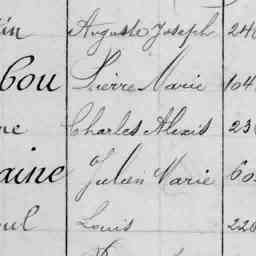 in Auguste Joseph 240
bou Pierre Marie 104
ne Charles Alexis 230
aine Julien Marie 60
oul Louis 220